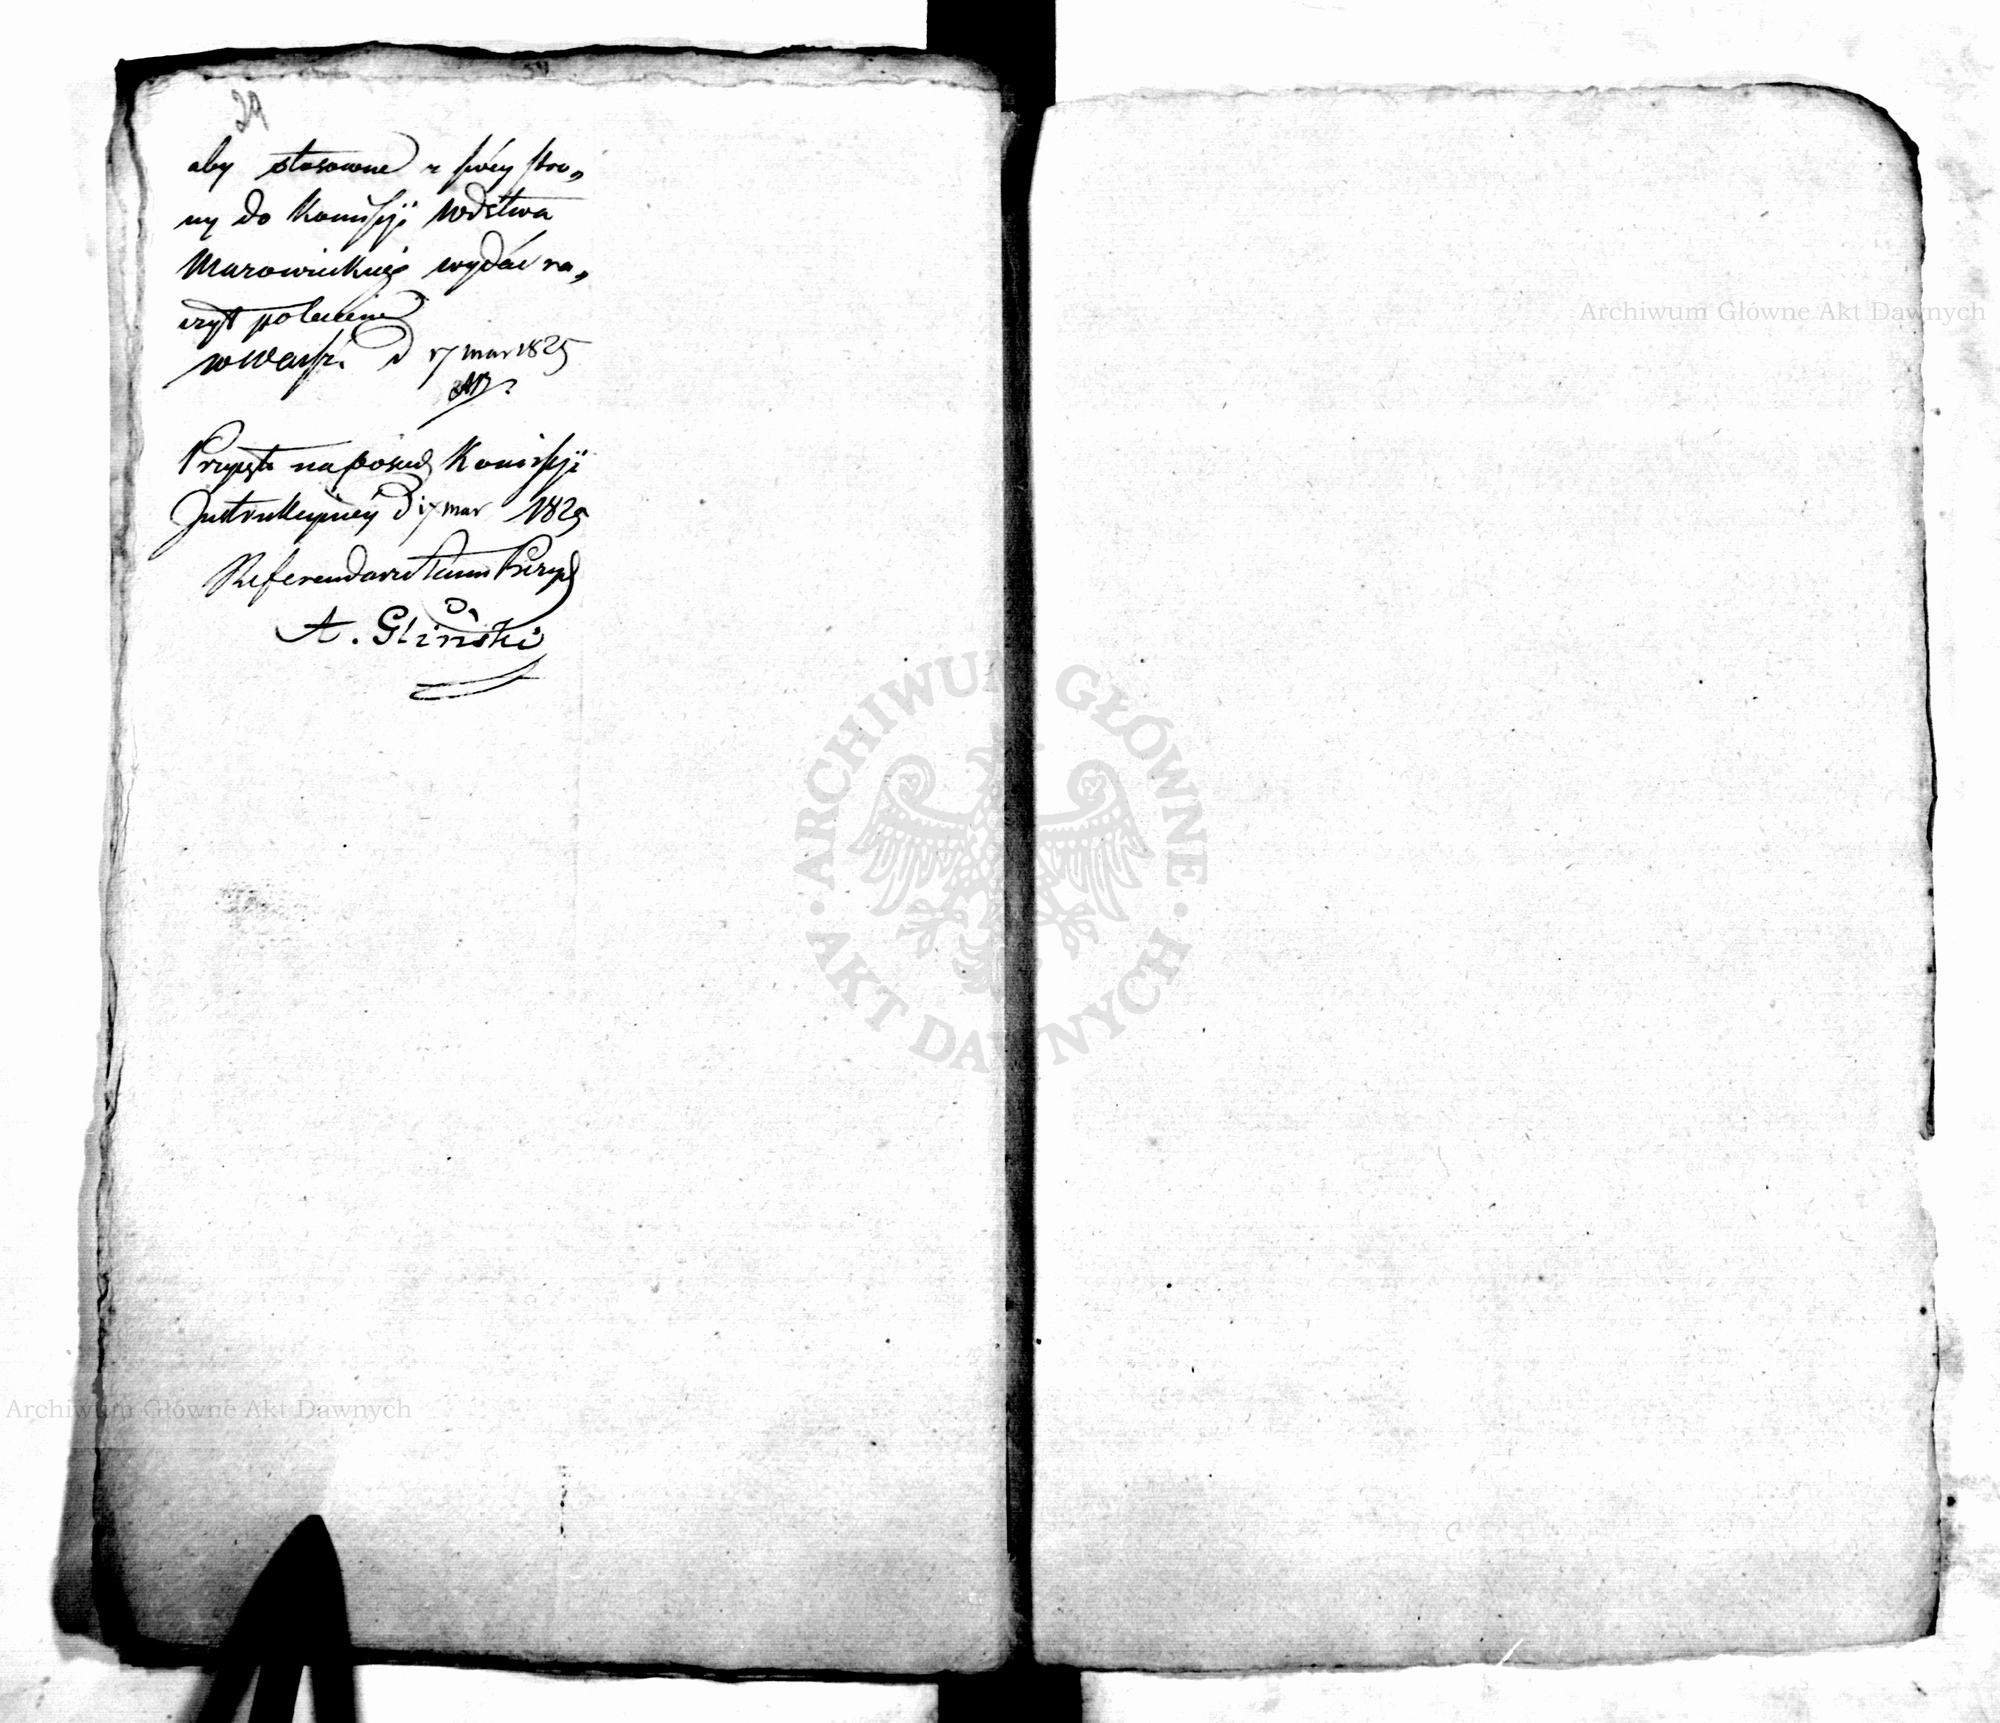 24
aby stosowne z swéy stro„
ny do Kommissyi Wdztwa
Mazowieckiego wydać ra„
czył polecenie
w Warsz. d 17 mar 1825
Przyjęto na posied. Komissyi
Instrukcyiney d 17 mar 1825
Referendarz Stanu Prezyd
A. Gliński
Archiwum Główne Akt Dawnych
ARCHIWUM GŁÓWNE AKT DAWNYCH
Archiwum Główne Akt Dawnych